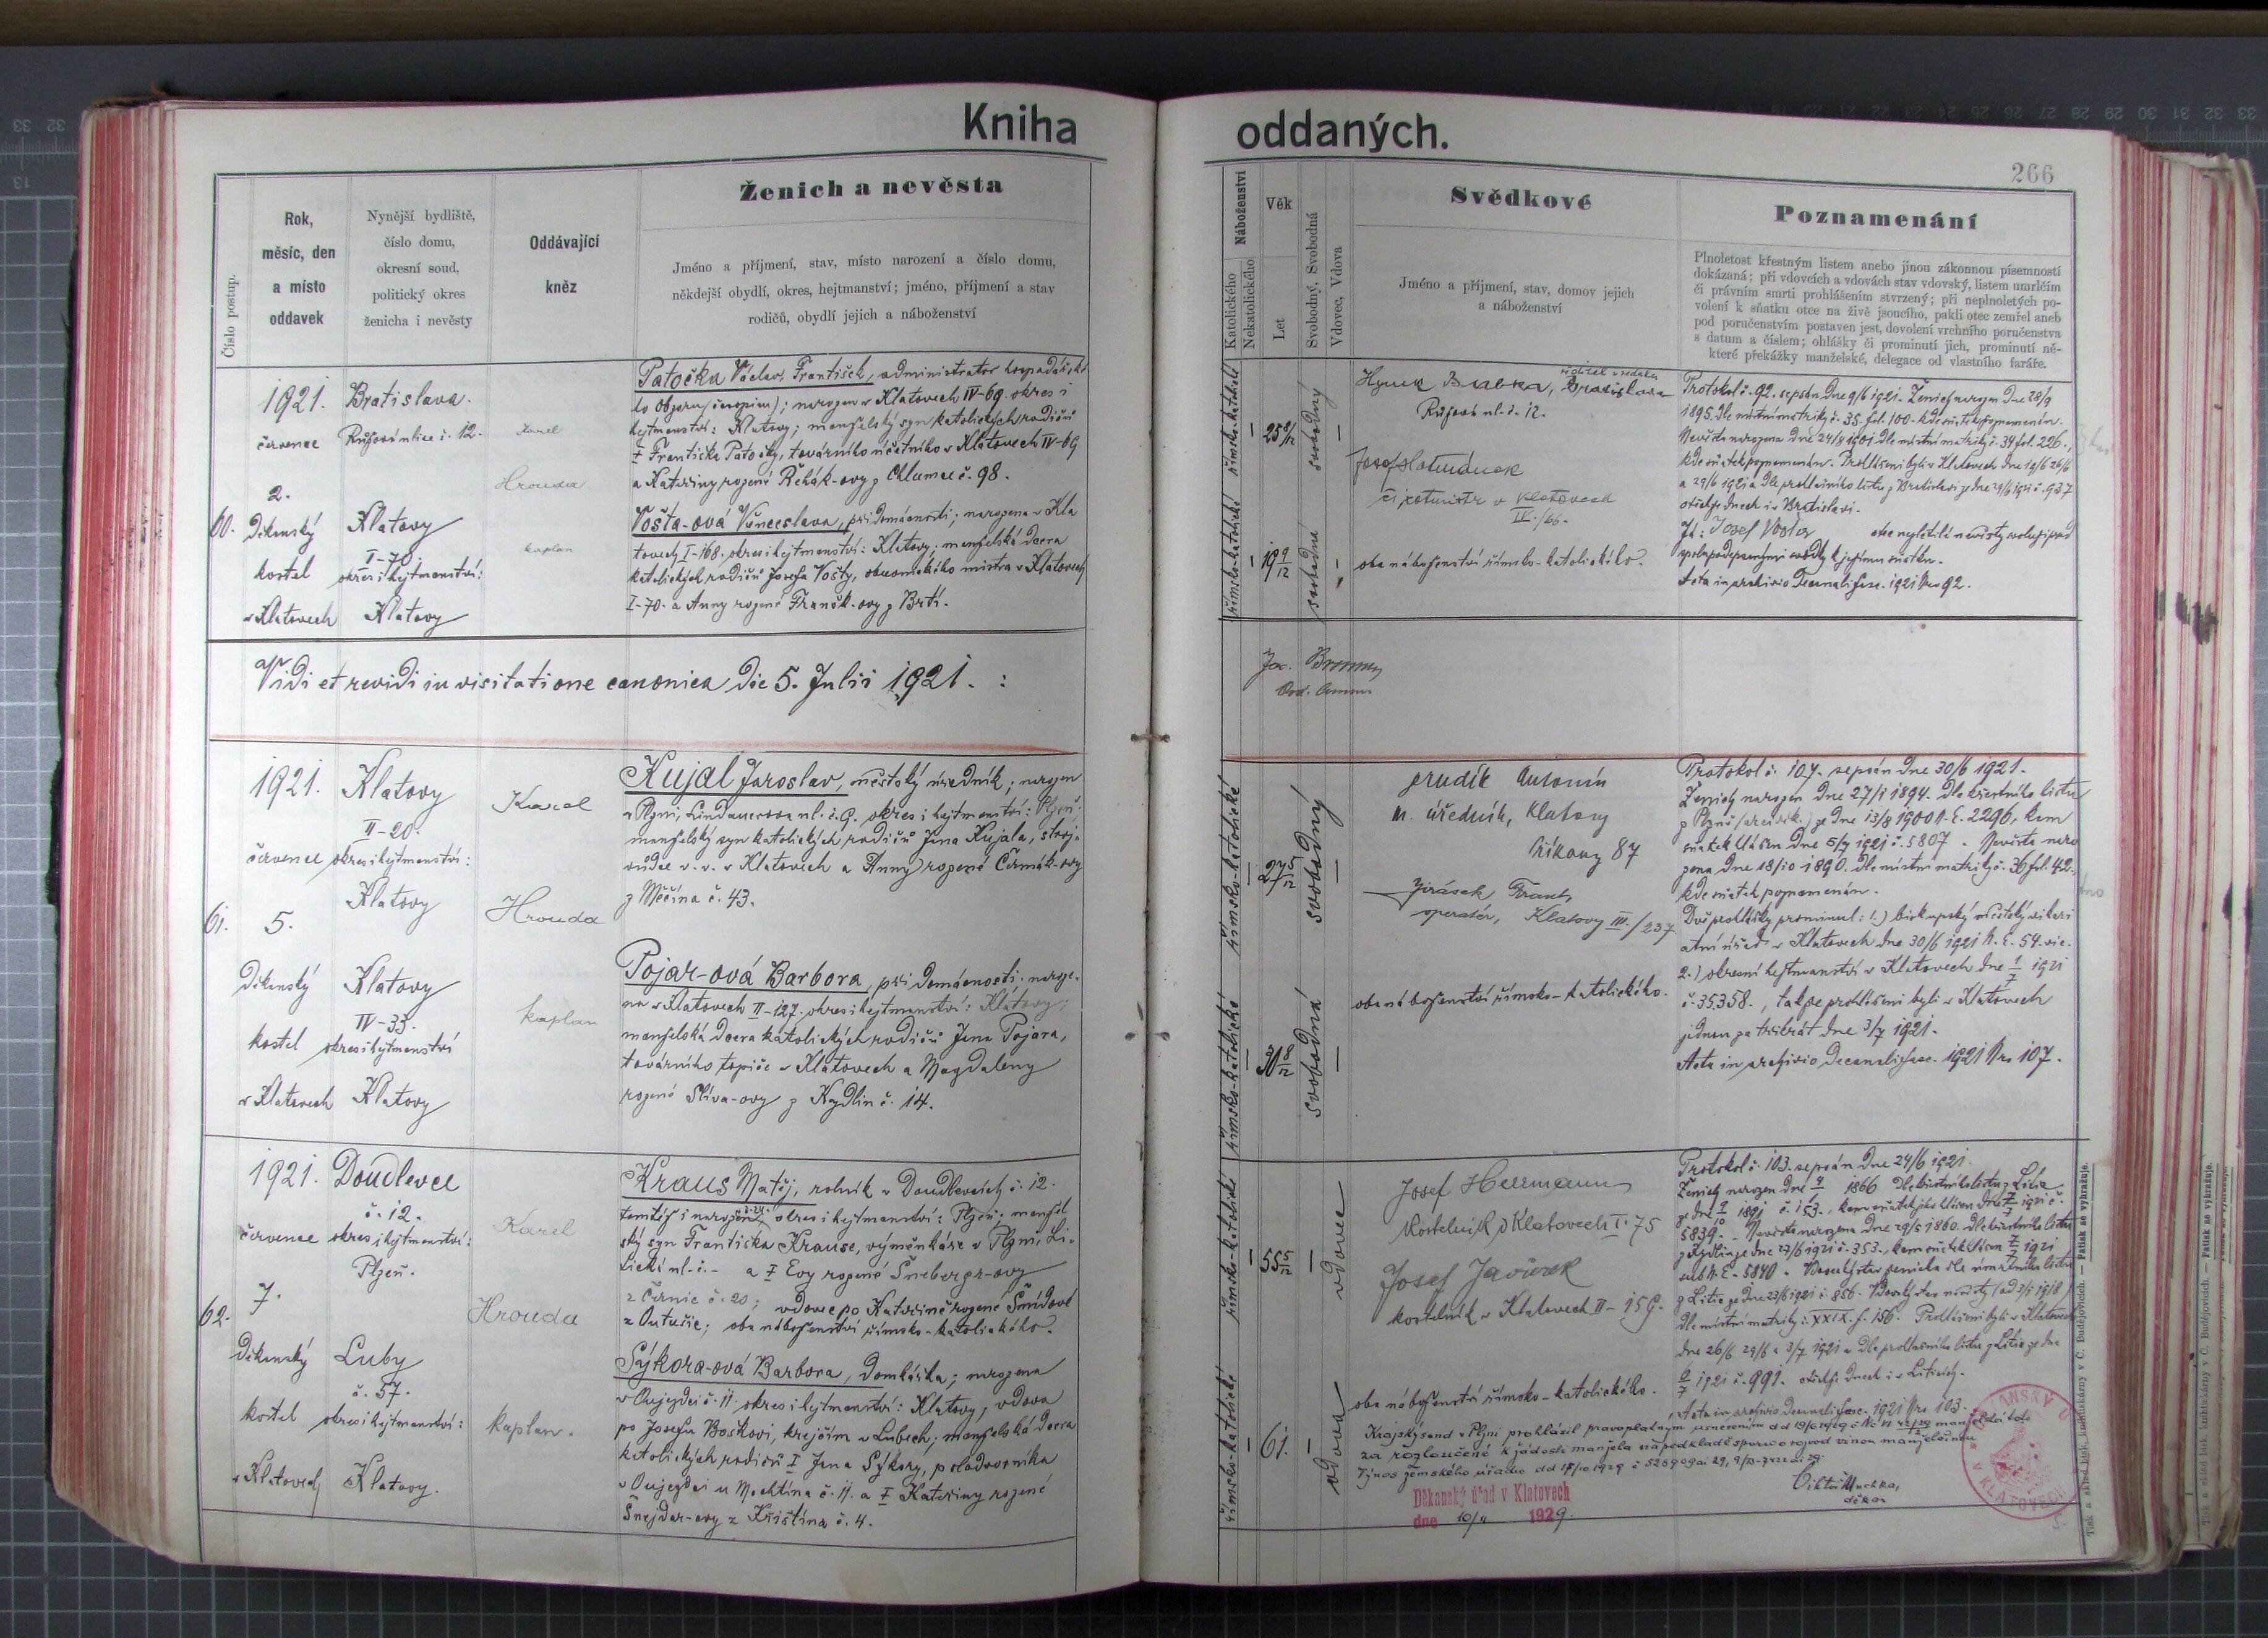 Kniha
oddaných.
266
Číslo postup.
Rok,
měsíc, den
a místo
oddavek
Nynější bydliště,
číslo domu,
okresní soud,
politický okres
ženicha i nevěsty
Oddávající
kněz
Ženich a nevěsta
Jméno a příjmení, stav, místo narození a číslo domu,
někdejší obydlí, okres, hejtmanství; jméno, příjmení a stav
rodičů, obydlí jejich a náboženství
Náboženství
Katolického
Nekatolického
Věk
Let
Svobodný, Svobodná
Vdovec, Vdova
Svědkové
Jméno a příjmení, stav, domov jejich
a náboženství
Poznamenání
Plnoletost křestným listem anebo jinou zákonnou písemností
dokázaná; při vdovcích a vdovách stav vdovský, listem umrlčím
či právním smrti prohlášením stvrzený; při neplnoletých po-
volení k sňatku otce na živě jsoucího, pakli otec zemřel aneb
pod poručenstvím postaven jest, dovolení vrchního poručenstva
s datum a číslem; ohlášky či prominutí jich, prominutí ně-
které překážky manželské, delegace od vlastního faráře.
60.
1921.
července
2.
Děkanský
kostel
v Klatovech
Bratislava.
Růžová ulice č. 12.
Klatovy
I-70.
okres i hejtmanství:
Klatovy
Karel
Hrouda
kaplan
Patočka Václav, František, administrátor hospodářské-
ho Obzoru (časopisu); narozen v Klatovech IV-69. okres i
hejtmanství: Klatovy; manželský syn katolických rodičů
† Františka Patočky, továrního účetního v Klatovech IV-69
a Kateřiny rozené Řehák-ovy z Chlumce č. 98.
Vošta-ová Věnceslava, při domácnosti; narozena v Kla
tovech I-168. okres i hejtmanství: Klatovy; manželská dcera
katolických rodičů Josefa Vošty, obuvnického mistra v Klatovech
I-70. a Anny rozené Franěk-ovy z Brtí.
římsko-katolické
25 8/12
svobodný
římsko-katolické
19 9/12
svobodná
Hynek Brabka, ředitel Bratislava
Růžová ul. č. 12.
Josef
v Klatovech
IV./66.
oba náboženství římsko-katolického.
Protokol č. 92. sepsán dne 9/6 1921. Ženich narozen dne 28/9
1895. dle místní matriky č. 35. fol. 100. kde sňatek poznamenán.
Nevěsta narozena dne 24/8 1901 dle místní matriky č. 34 fol. 226.,
kde sňatek poznamenán. Prohlášeni byli v Klatovech dne 19/6 26/6
a 29/6 1921 a dle prohlašního listu z Bratislavi ze dne 29/6 1921 č. 937
v Bratislavi.
Já: Josef Vošta otec nezletilé nevěsty svoluji před
spolupodepsanými svědky k jejímu sňatku.
Acta in archivio Decanali fasc. 1921 Nro 92.
Vidi et revidi in visitatione canonica die 5. Julii 1921. :
61.
1921.
července
5.
Děkanský
kostel
v Klatovech
Klatovy
II-20.
okres i hejtmanství:
Klatovy
Klatovy
IV-33.
okres i hejtmanství
Klatovy
Karel
Hrouda
kaplan
Kujal Jaroslav, městský úředník; narozen
v Plzni, Lindauerova ul. č. 9. okres i hejtmanství: Plzeň;
manželský syn katolických rodičů Jana Kujala, stroj-
vůdce v. v. v Klatovech a Anny rozené Čermák-ovy
z Měčína č. 43.
Pojar-ová Barbora, při domácnosti. naroze-
na v Klatovech II-127. okres i hejtmanství: Klatovy;
manželská dcera katolických rodičů Jana Pojara,
továrního topiče v Klatovech a Magdaleny
rozené Slíva-ovy z Kydlin č. 14.
římsko-katolické
27 5/12
svobodný
římsko-katolické
30 8/12
svobodná
prudík Antonín
m. úředník, Klatovy
Říkovy 87
Jirásek Frant.
operatér, Klatovy III/237
oba náboženství římsko-katolického.
Protokol č. 107. sepsán dne 30/6 1921.
Ženich narozen dne 27/1 1894. dle křestního listu
z Plzně (arciděk.) ze dne 13/8 1900 č. 2296, kam
sňatek hlášen dne 5/7 1921 č. 5807. Nevěsta naro
zena dne 18/10 1890. dle místní matriky č. 30 fol. 42.,
kde sňatek poznamenán.
Dvě prohlášky prominul: 1.) biskupský městský vikari
atní úřad v Klatovech dne 30/6 1921 N. E. 54. vic.
2.) okresní hejtmanství v Klatovech dne 1/7 1921
č. 35.358., takže prohlášeni byli v Klatovech
jednou za třikrát dne 3/7 1921.
Acta in archivio Decanali fasc. 1921 Nro 107.
62.
1921.
července
7.
Děkanský
kostel
v Klatovech
Doudlevce
č. 12.
okres i hejtmanství:
Plzeň.
Luby
č. 57.
okres i hejtmanství:
Klatovy.
Karel
Hrouda
kaplan.
Kraus Matěj, rolník v Doudlevcích č. 12.
tamtéž i narozený okres i hejtmanství: Plzeň. manžel
ský syn Františka Krause, výměnkáře v Plzni, Li-
tická ul. č. - a † Evy rozené Šneberger-ovy
z Černic č. 20; vdovec po Kateřině rozené Šmídové
z Outušic; oba náboženství římsko-katolického.
Sýkora-ová Barbora, domkářka; narozena
v Oujezdci č. 11. okres i hejtmanství: Klatovy, vdova
po Josefu Boškovi, krejčím v Lubech; manželská dcera
katolických rodičů † Jana Sýkory, polodvorníka
v Oujezdci u Mochtína č. 11. a † Kateřiny rozené
Šnejdar-ovy z Křištína č. 4.
římsko-katolické
55 5/12
vdovec
římsko-katolické
61.
vdova
Josef Herrmann
kostelník v Klatovech I. 75
Josef Javůrek
kostelník v Klatovech II-159.
oba náboženství římsko-katolického.
Protokol č. 103. sepsán dne 24/6 1921.
Ženich narozen dne 1866 dle křestního listu z Litic
1891 č. 153., kam sňatek hlášen dne 7/7 1921 č.
5839. - Nevěsta narozena dne 29/5 1860. dle křestního listu
z Kydlin ze dne 27/6 1921 č. 353., kam sňatek hlášen 7/7 1921
sub N. E. 5840. Vdovský stav ženicha dle úmrtního listu
z Litic ze dne 23/6 1921 č. 856. Vdovský stav nevěsty (od 3/1 1918)
dle místní matriky č. XXIX. f. 156. Prohlášeni byli v Klatovech
dne 26/6 29/6 a 3/7 1921 a dle prohlašního listu z Litic ze dne
6/7 1921 č. 991. v Liticích.
Acta in archivio Decanali fasc. 1921 Nro 103.
Krajský soud v Plzni prohlásil pravoplatným usnesením od 19/6 1929 manželství toto
za rozloučené k žádosti manžela na podkladě sporu o rozvod vinou manželčinou
Výnos zemského úřadu dd 17/10 1929 č 526909 ai 29,
Děkanský úřad v Klatovech
dne 10/11 1929.
Viktor Muchka,
děkan
DĚKANSKÝ Ú
V KLATOVECH
Tisk a sklad bisk. knihtiskárny v Č. Budějovicích. — Patisk se vyhražuje.